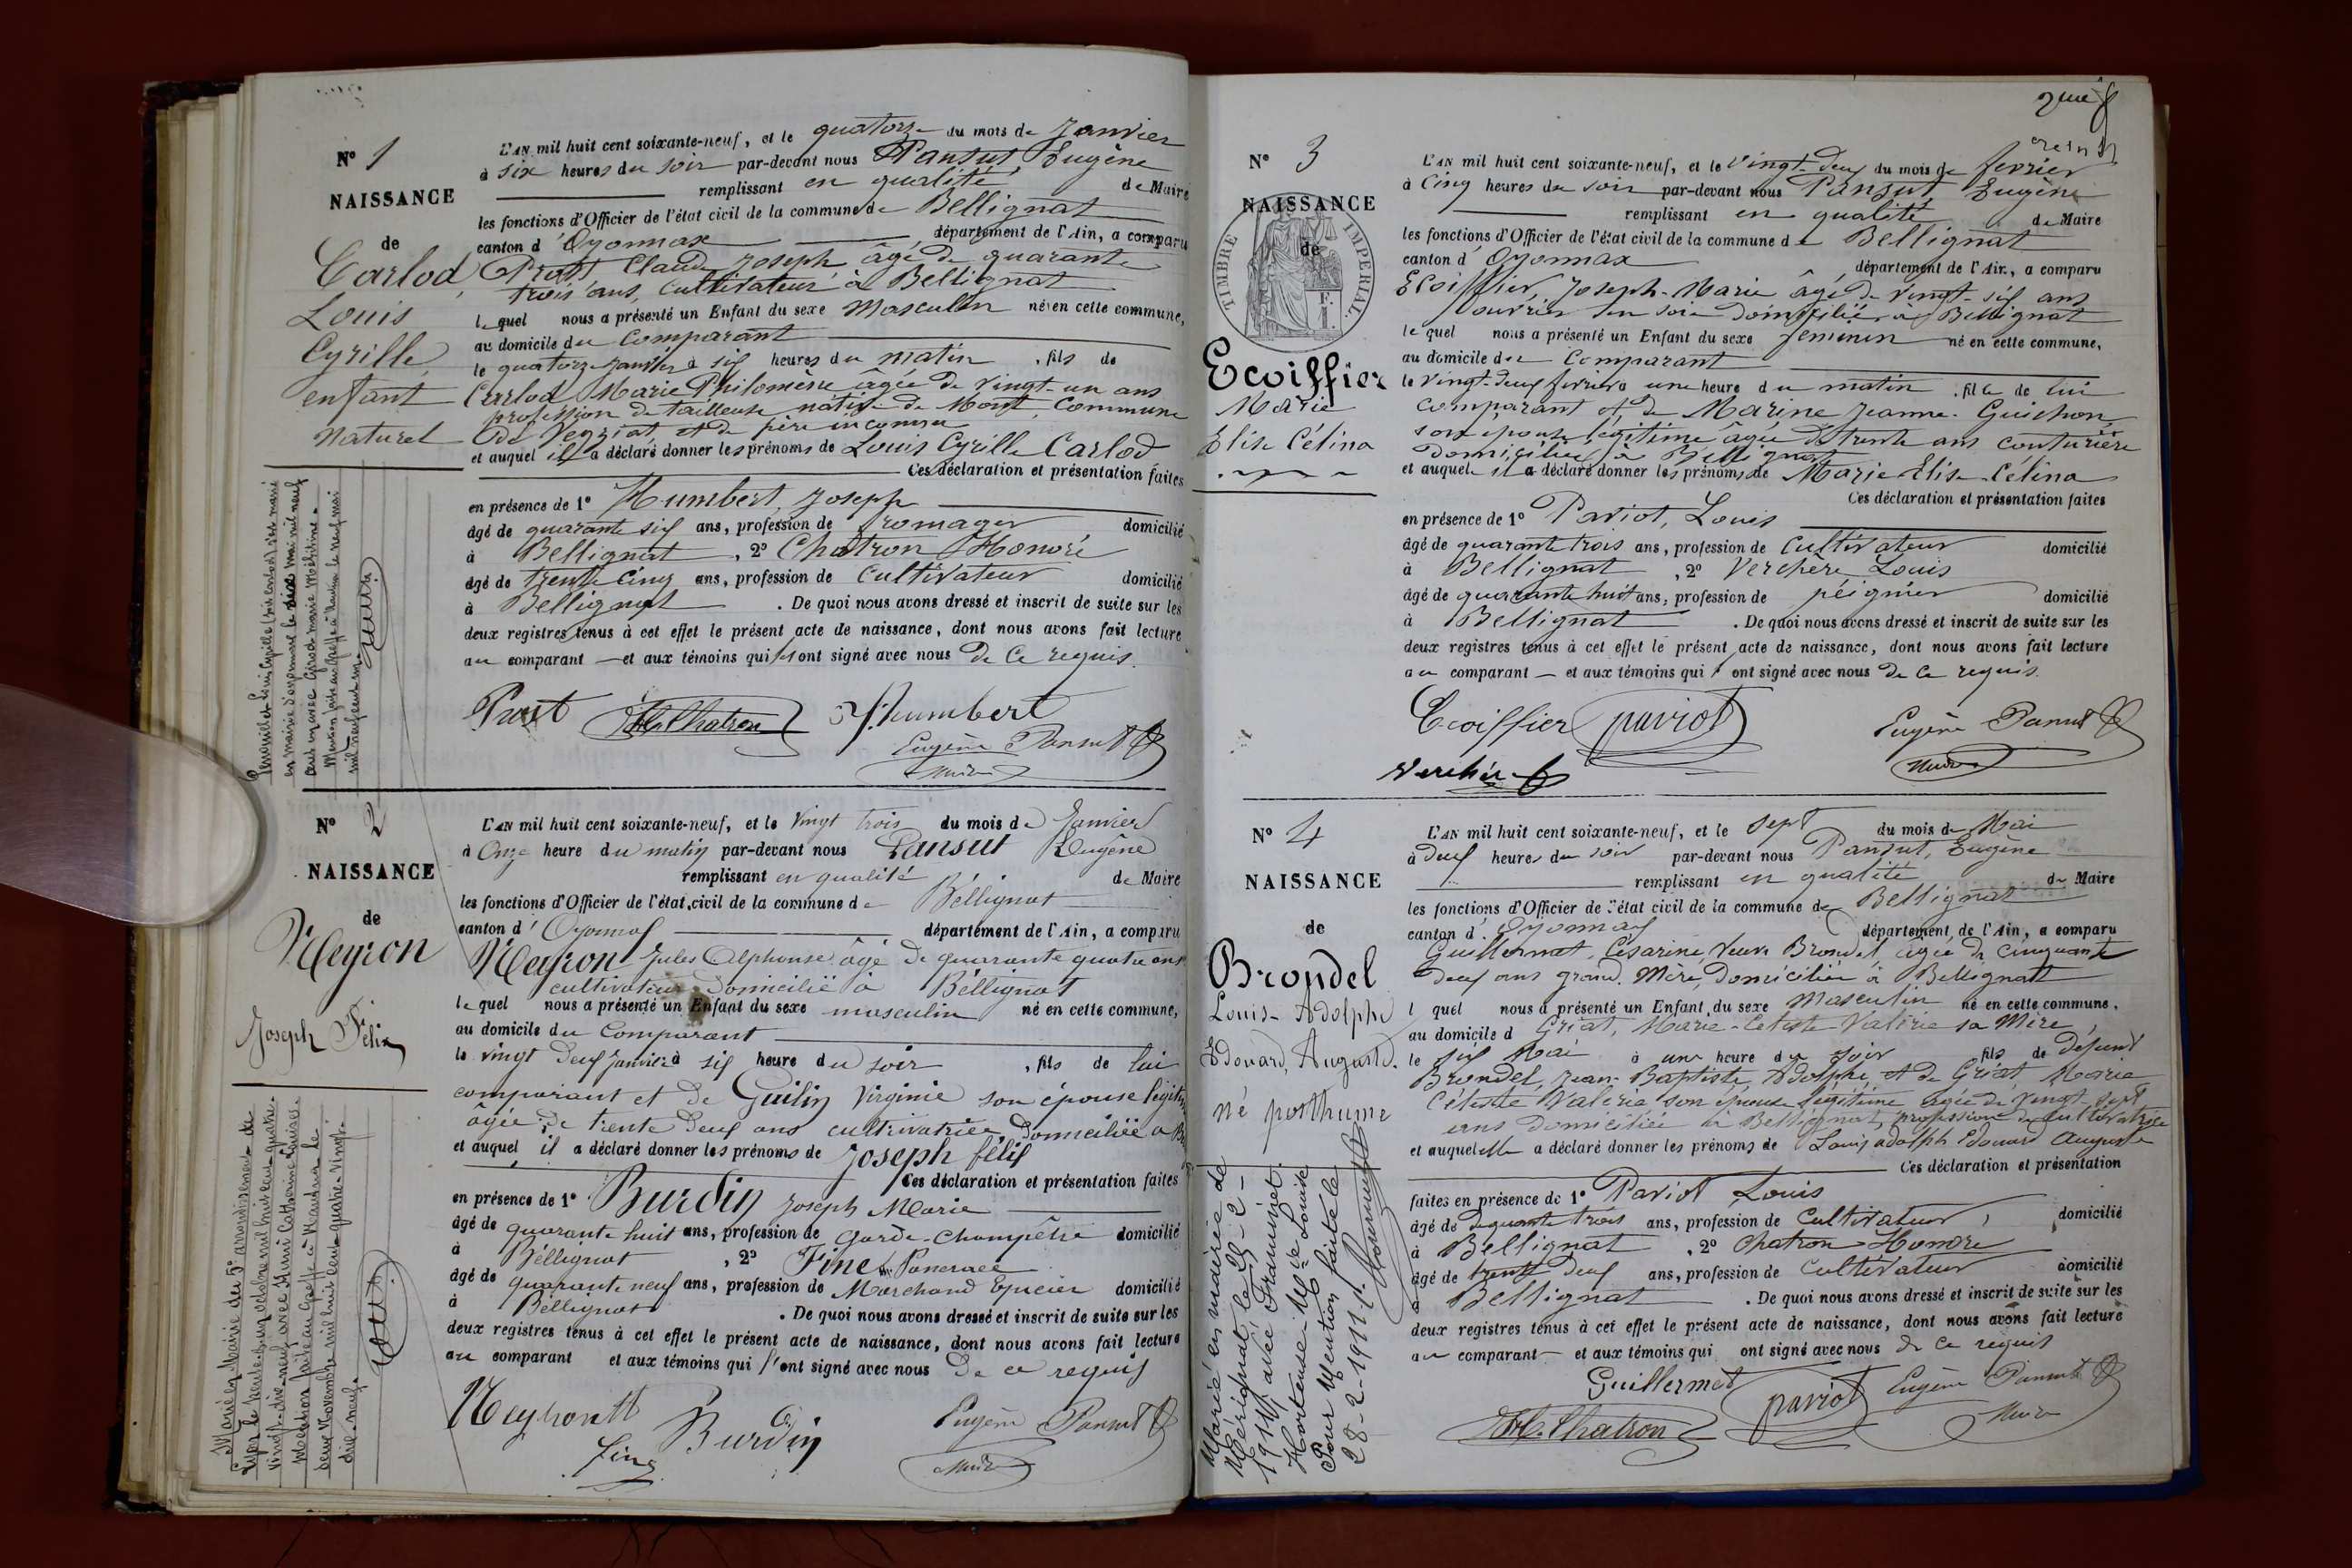 N° 1
NAISSANCE
de
Carlod,
Louis
Cyrille,
enfant
Naturel
L'AN mil huit cent soixante-neuf, et le quatorze du mois de Janvier
à six heures du soir par-devant nous Pansut Eugène
remplissant en qualité de Maire
les fonctions d'Officier de l'état civil de la commune de Bellignat
canton d'Oyonnax département de l'Ain, a comparu
Prost Claude Joseph âgé de quarante
trois ans, cultivateur à Bellignat
lequel nous a présenté un Enfant du sexe Masculin né en cette commune,
au domicile du Comparant
le quatorze janvier à six heures du matin, fils de
Carlod Marie Philomène âgée de vingt-un ans
profession de tailleuse native de Mont, Commune
de Veyziat et de père inconnu
et auquel il a déclaré donner les prénoms de Louis Cyrille Carlod
Ces déclaration et présentation faites
en présence de 1° Humbert, Joseph
âgé de quarante six ans, profession de fromager domicilié
à Bellignat, 2° Chatron Honoré
âgé de trente cinq ans, profession de cultivateur domicilié
à Bellignat. De quoi nous avons dressé et inscrit de suite sur les
deux registres tenus à cet effet le présent acte de naissance, dont nous avons fait lecture
au comparant et aux témoins qui ont signé avec nous de ce requis.
Prost H. Chatron J. humbert
Eugène Pansut
Maire
en mairie d'oyonnax le
mil neuf cent
N° 2
NAISSANCE
de
Neyron
Joseph Félix
L'AN mil huit cent soixante-neuf, et le vingt trois du mois de Janvier
à Onze heure du matin par-devant nous Pansut Eugène
remplissant en qualité de Maire
les fonctions d'Officier de l'état civil de la commune de Béllignat
canton d'Oyonnax département de l'Ain, a comparu
Neyron Jules Alphonse âgé de quarante quatre ans
cultivateur domicilié à Béllignat
lequel nous a présenté un Enfant du sexe masculin né en cette commune,
au domicile du Comparant
le vingt deux janvier à six heure du soir, fils de lui
comparant et de Guilin Virginie son épouse légitime
âgée de trente deux ans cultrivatrice domiciliée a
et auquel il a déclaré donner les prénoms de Joseph félix
Ces déclaration et présentation faites
en présence de 1° Burdin Joseph Marie
âgé de quarante huit ans, profession de garde-champêtre domicilié
à Béllignat, 2° Fine
âgé de quarante neuf ans, profession de Marchand Epicier domicilié
à Béllignat. De quoi nous avons dressé et inscrit de suite sur les
deux registres tenus à cet effet le présent acte de naissance, dont nous avons fait lecture
au comparant et aux témoins qui ont signé avec nous de ce requis
Neyron Burdin Eugène Pansut
fine Maire
Marié en Mairie du 5e arrondissement de
Lyon le octobre mil huit cent quatre
vingt-dix-neuf avec Catherine Louise.
Mention faite au Greffe à Nantua le
deux Novembre mil huit cent quatre-vingt-
dix-neuf.
N° 3
NAISSANCE
de
TIMBRE IMPERIAL
Ecoiffier
Marie
Elise Célina
L'AN mil huit cent soixante-neuf, et le vingt-deux du mois de fevrier
à Cinq heures du soir par-devant nous Pansut, Eugène
remplissant en qualité de Maire
les fonctions d'Officier de l'état civil de la commune de Bellignat
canton d'Oyonnax département de l'Ain, a comparu
Ecoiffier, Joseph-Marie âgé de vingt-six ans
ouvrier en soie domicilié à Bellignat
lequel nous a présenté un Enfant du sexe feminin né en cette commune,
au domicile du Comparant
le vingt-deux fevrier à une heure du matin, fille de lui
comparant et de Marine Jeanne Guichon,
son épouse légitime âgée de trente ans couturière
domiciliée à Bellignat
et auquel il a déclaré donner les prénoms de Marie Elise Célina
Ces déclaration et présentation faites
en présence de 1° Paviot, Louis
âgé de quarante trois ans, profession de Cultivateur domicilié
à Bellignat, 2° Verchère Louis
âgé de quarante huit ans, profession de péignier domicilié
à Bellignat. De quoi nous avons dressé et inscrit de suite sur les
deux registres tenus à cet effet le présent acte de naissance, dont nous avons fait lecture
au comparant et aux témoins qui ont signé avec nous de ce requis.
Ecoiffier paviot Eugène Pansut
Verchère Maire
N° 4
NAISSANCE
de
Brondel
Louis-Adolphe
Edouard, Auguste.
né posthume
L'AN mil huit cent soixante-neuf, et le sept du mois de Mai
à deux heures du soir par-devant nous Pansut, Eugène
remplissant en qualité de Maire
les fonctions d'Officier de l'état civil de la commune de Bellignat
canton d'Oyonnax département de l'Ain, a comparu
Guillermet, Césarine, Veuve Brondel, âgée de cinquante
deux ans grand Mère, domiciliée à Bellignat
l quel nous a présenté un Enfant du sexe Masculin né en cette commune,
au domicile d Griat, Marie-Céleste-Valérie sa Mère,
le six Mai à une heure du soir fils de défunt
Brondel, Jean-Baptiste, Adolphe, et de Griat, Marie
Céleste Valérie son épouse légitime agée de vingt-sept
ans domiciliée à Bellignat, profession de cultivatrice
et auquel elle a déclaré donner les prénoms de Louis adolph Edouard Auguste
Ces déclaration et présentation
faites en présence de 1° Paviot Louis
âgé de quarante trois ans, profession de Cultivateur, domicilié
à Bellignat, 2° Chatron Honoré
âgé de trente deux ans, profession de Cultivateur domicilié
à Bellignat. De quoi nous avons dressé et inscrit de suite sur les
deux registres tenus à cet effet le présent acte de naissance, dont nous avons fait lecture
au comparant et aux témoins qui ont signé avec nous de ce requis
Guillermet paviot Eugène Pansut
H. Chatron Maire
Marié en mairie de
Mérignat le
1911, avec
Hortense Louise
Pour Mention faite le
28-2-1911